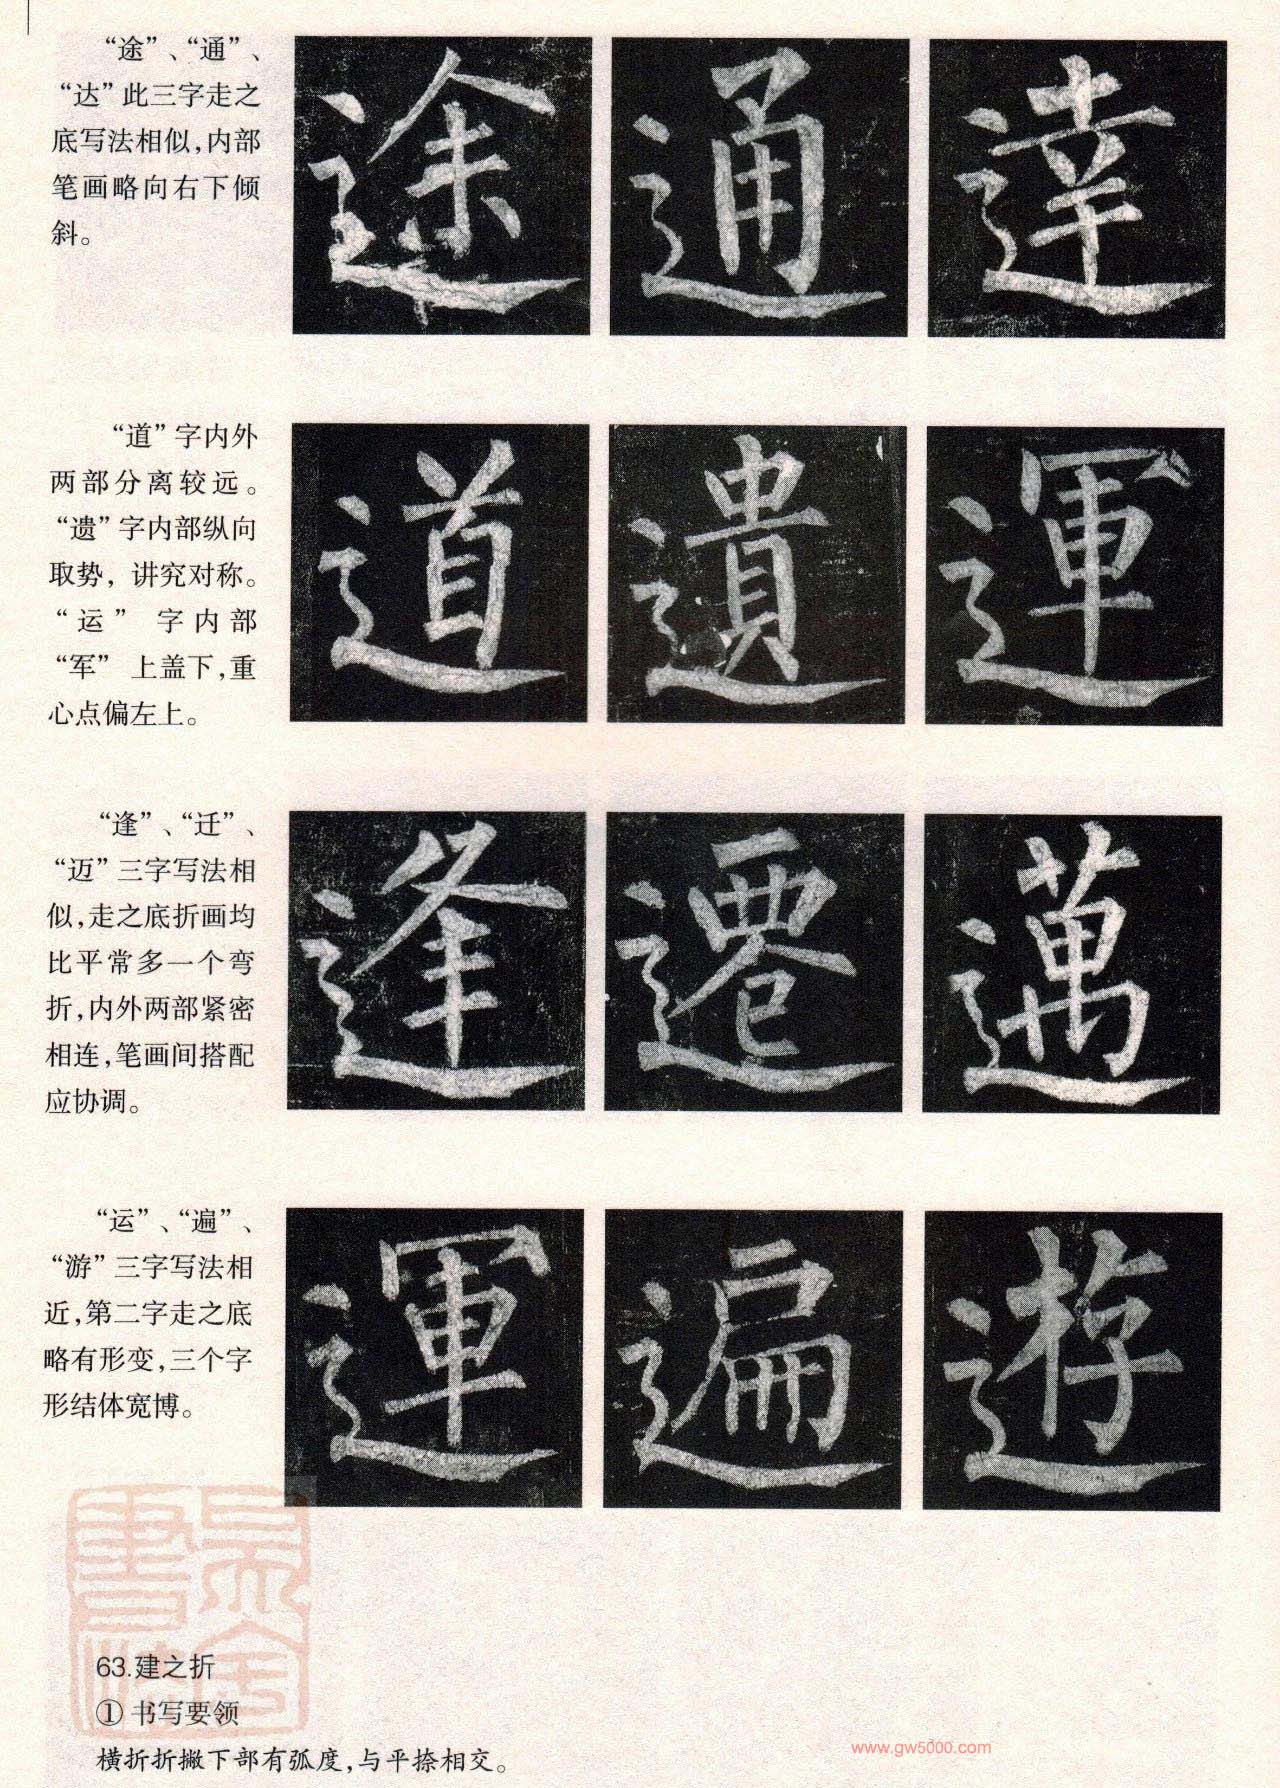 “途”、“通”、
“达”此三字走之
底写法相似,内部
笔画略向右下倾
斜。
途 通 達
“道”字内外
两部分离较远。
“遗”字内部纵向
取势,讲究对称。
“运”字内部
“军”上盖下,重
心点偏左上。
道 遺 運
“逢”、“迁”、
“迈”三字写法相
似,走之底折画均
比平常多一个弯
折,内外两部紧密
相连,笔画间搭配
应协调。
逢 遷 邁
“运”、“遍”、
“游”三字写法相
近,第二字走之底
略有形变,三个字
形结体宽博。
運 遍 遊
63.建之折
① 书写要领
横折折撇下部有弧度,与平捺相交。
www.gw5000.com